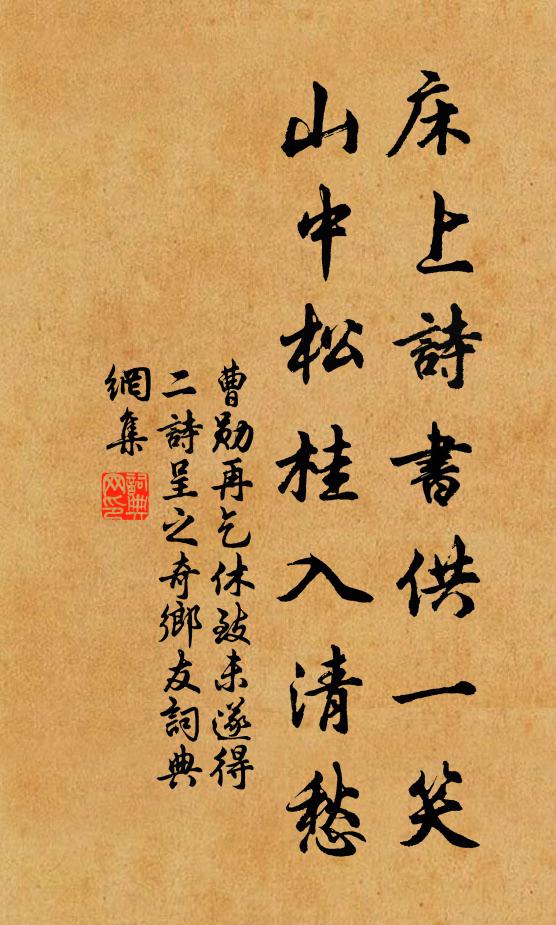 床上詩書供一笑
山中松桂入清愁
曹勛再乞休致未遂得
二詩呈之奇鄉友詞典
網集
詞典
网印